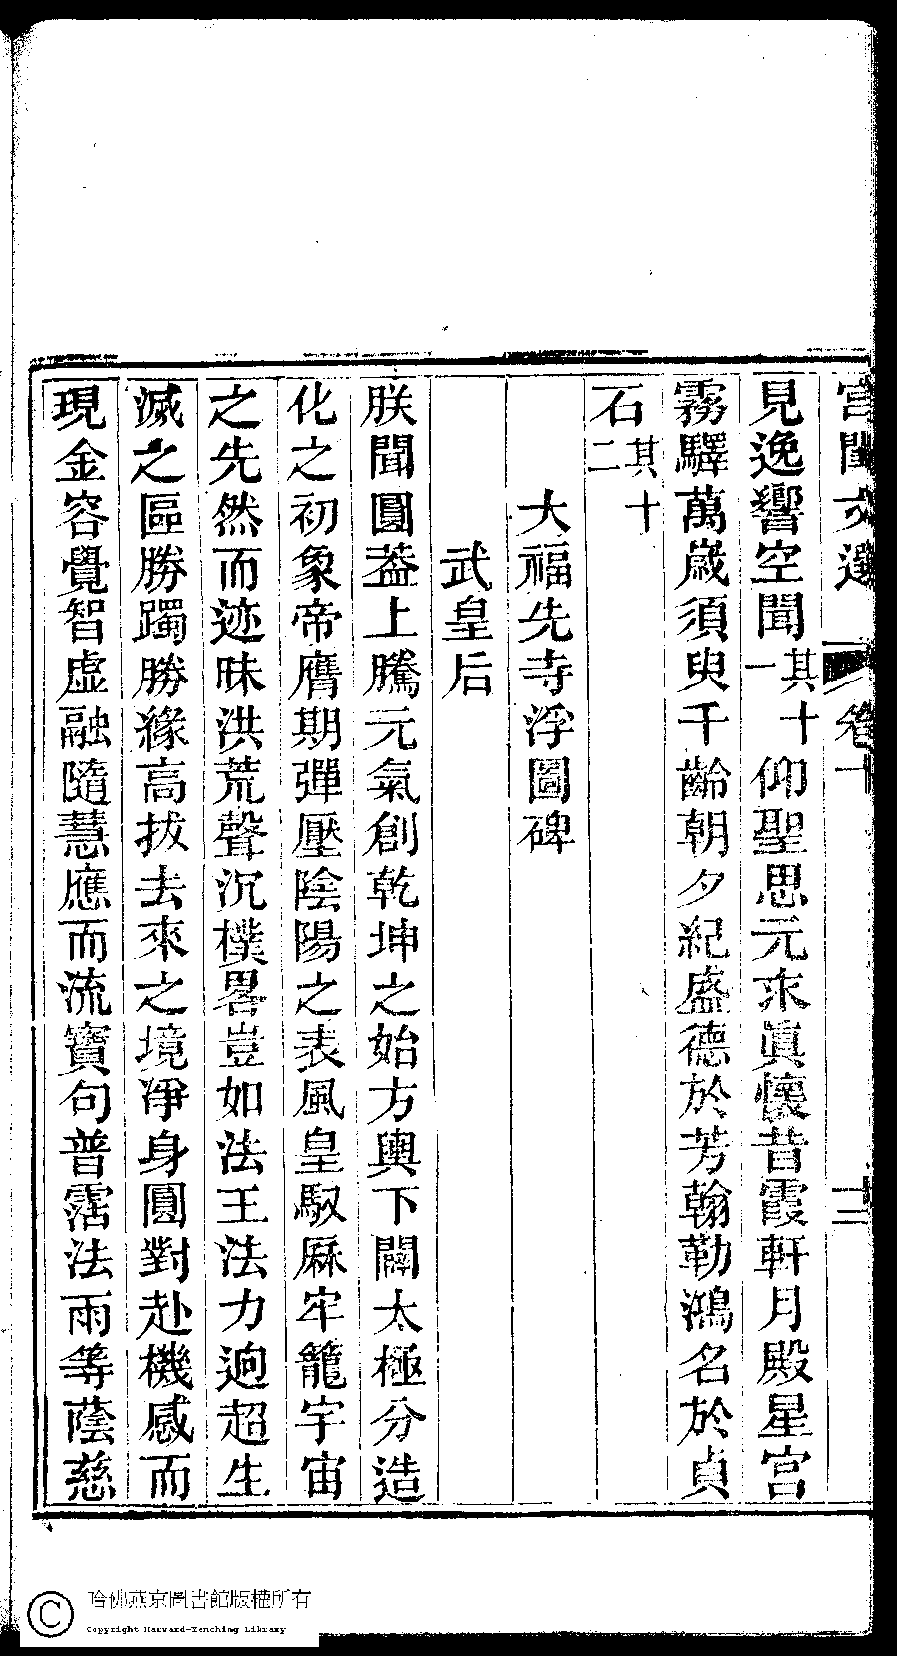 宮閨文選 卷十 十二
見逸響空聞其十一仰聖思元來眞懷昔霞軒月殿星宮
霧驛萬歲須臾千齡朝夕紀盛德於芳翰勒鴻名於貞
石其十二
大福先寺浮圖碑
武皇后
朕聞圓葢上騰元氣創乾坤之始方輿下闢太極分造
化之初象帝膺期彈壓陰陽之表風皇馭厤牢籠宇宙
之先然而迹昧洪荒聲沉樸畧豈如法王法力迥超生
滅之區勝躅勝緣高拔去來之境淨身圓對赴機感而
現金容覺智虛融隨慧應而流寶句普霑法雨等蔭慈
哈佛燕京圖書館版權所有
Copyright Harvard-Yenching Library